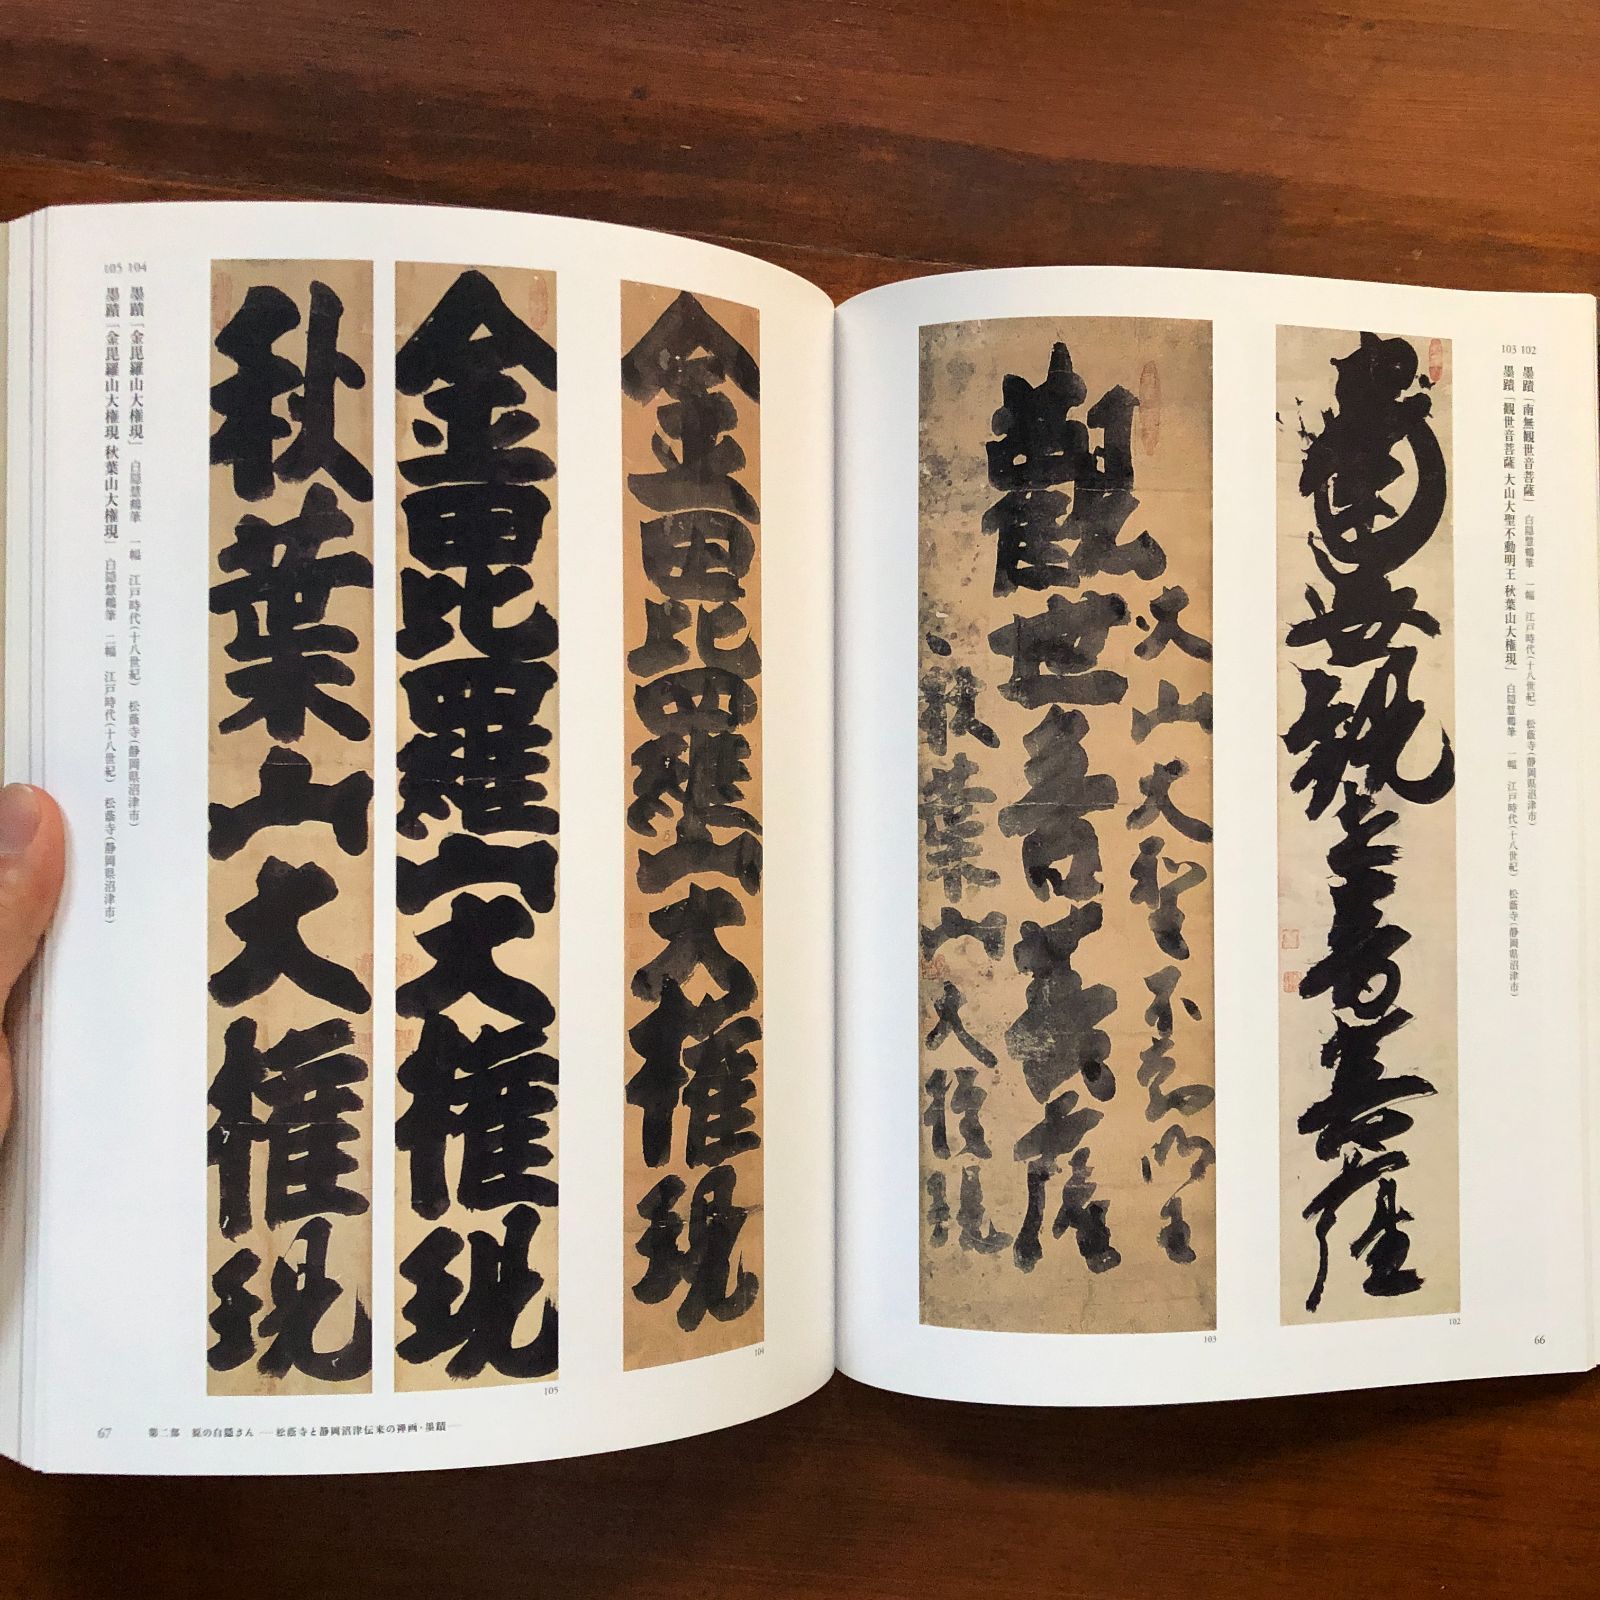 102 墨蹟「南無観世音菩薩」 白隠慧鶴筆 一幅 江戸時代(十八世紀) 松蔭寺(静岡県沼津市)
103 墨蹟「観世音菩薩 大山大聖不動明王 秋葉山大権現」 白隠慧鶴筆 一幅 江戸時代(十八世紀) 松蔭寺(静岡県沼津市)
南無観世音菩薩
102
大山大聖不動明王
觀世音菩薩
秋葉山大権現
103
66
104 墨蹟「金毘羅山大権現」 白隠慧鶴筆 一幅 江戸時代(十八世紀) 松蔭寺(静岡県沼津市)
105 墨蹟「金毘羅山大権現 秋葉山大権現」 白隠慧鶴筆 二幅 江戸時代(十八世紀) 松蔭寺(静岡県沼津市)
金毘羅山大權現
104
金毘羅山大權現
秋葉山大權現
105
67 第二部 原の白隠さん ―松蔭寺と静岡沼津伝来の禅画・墨蹟―